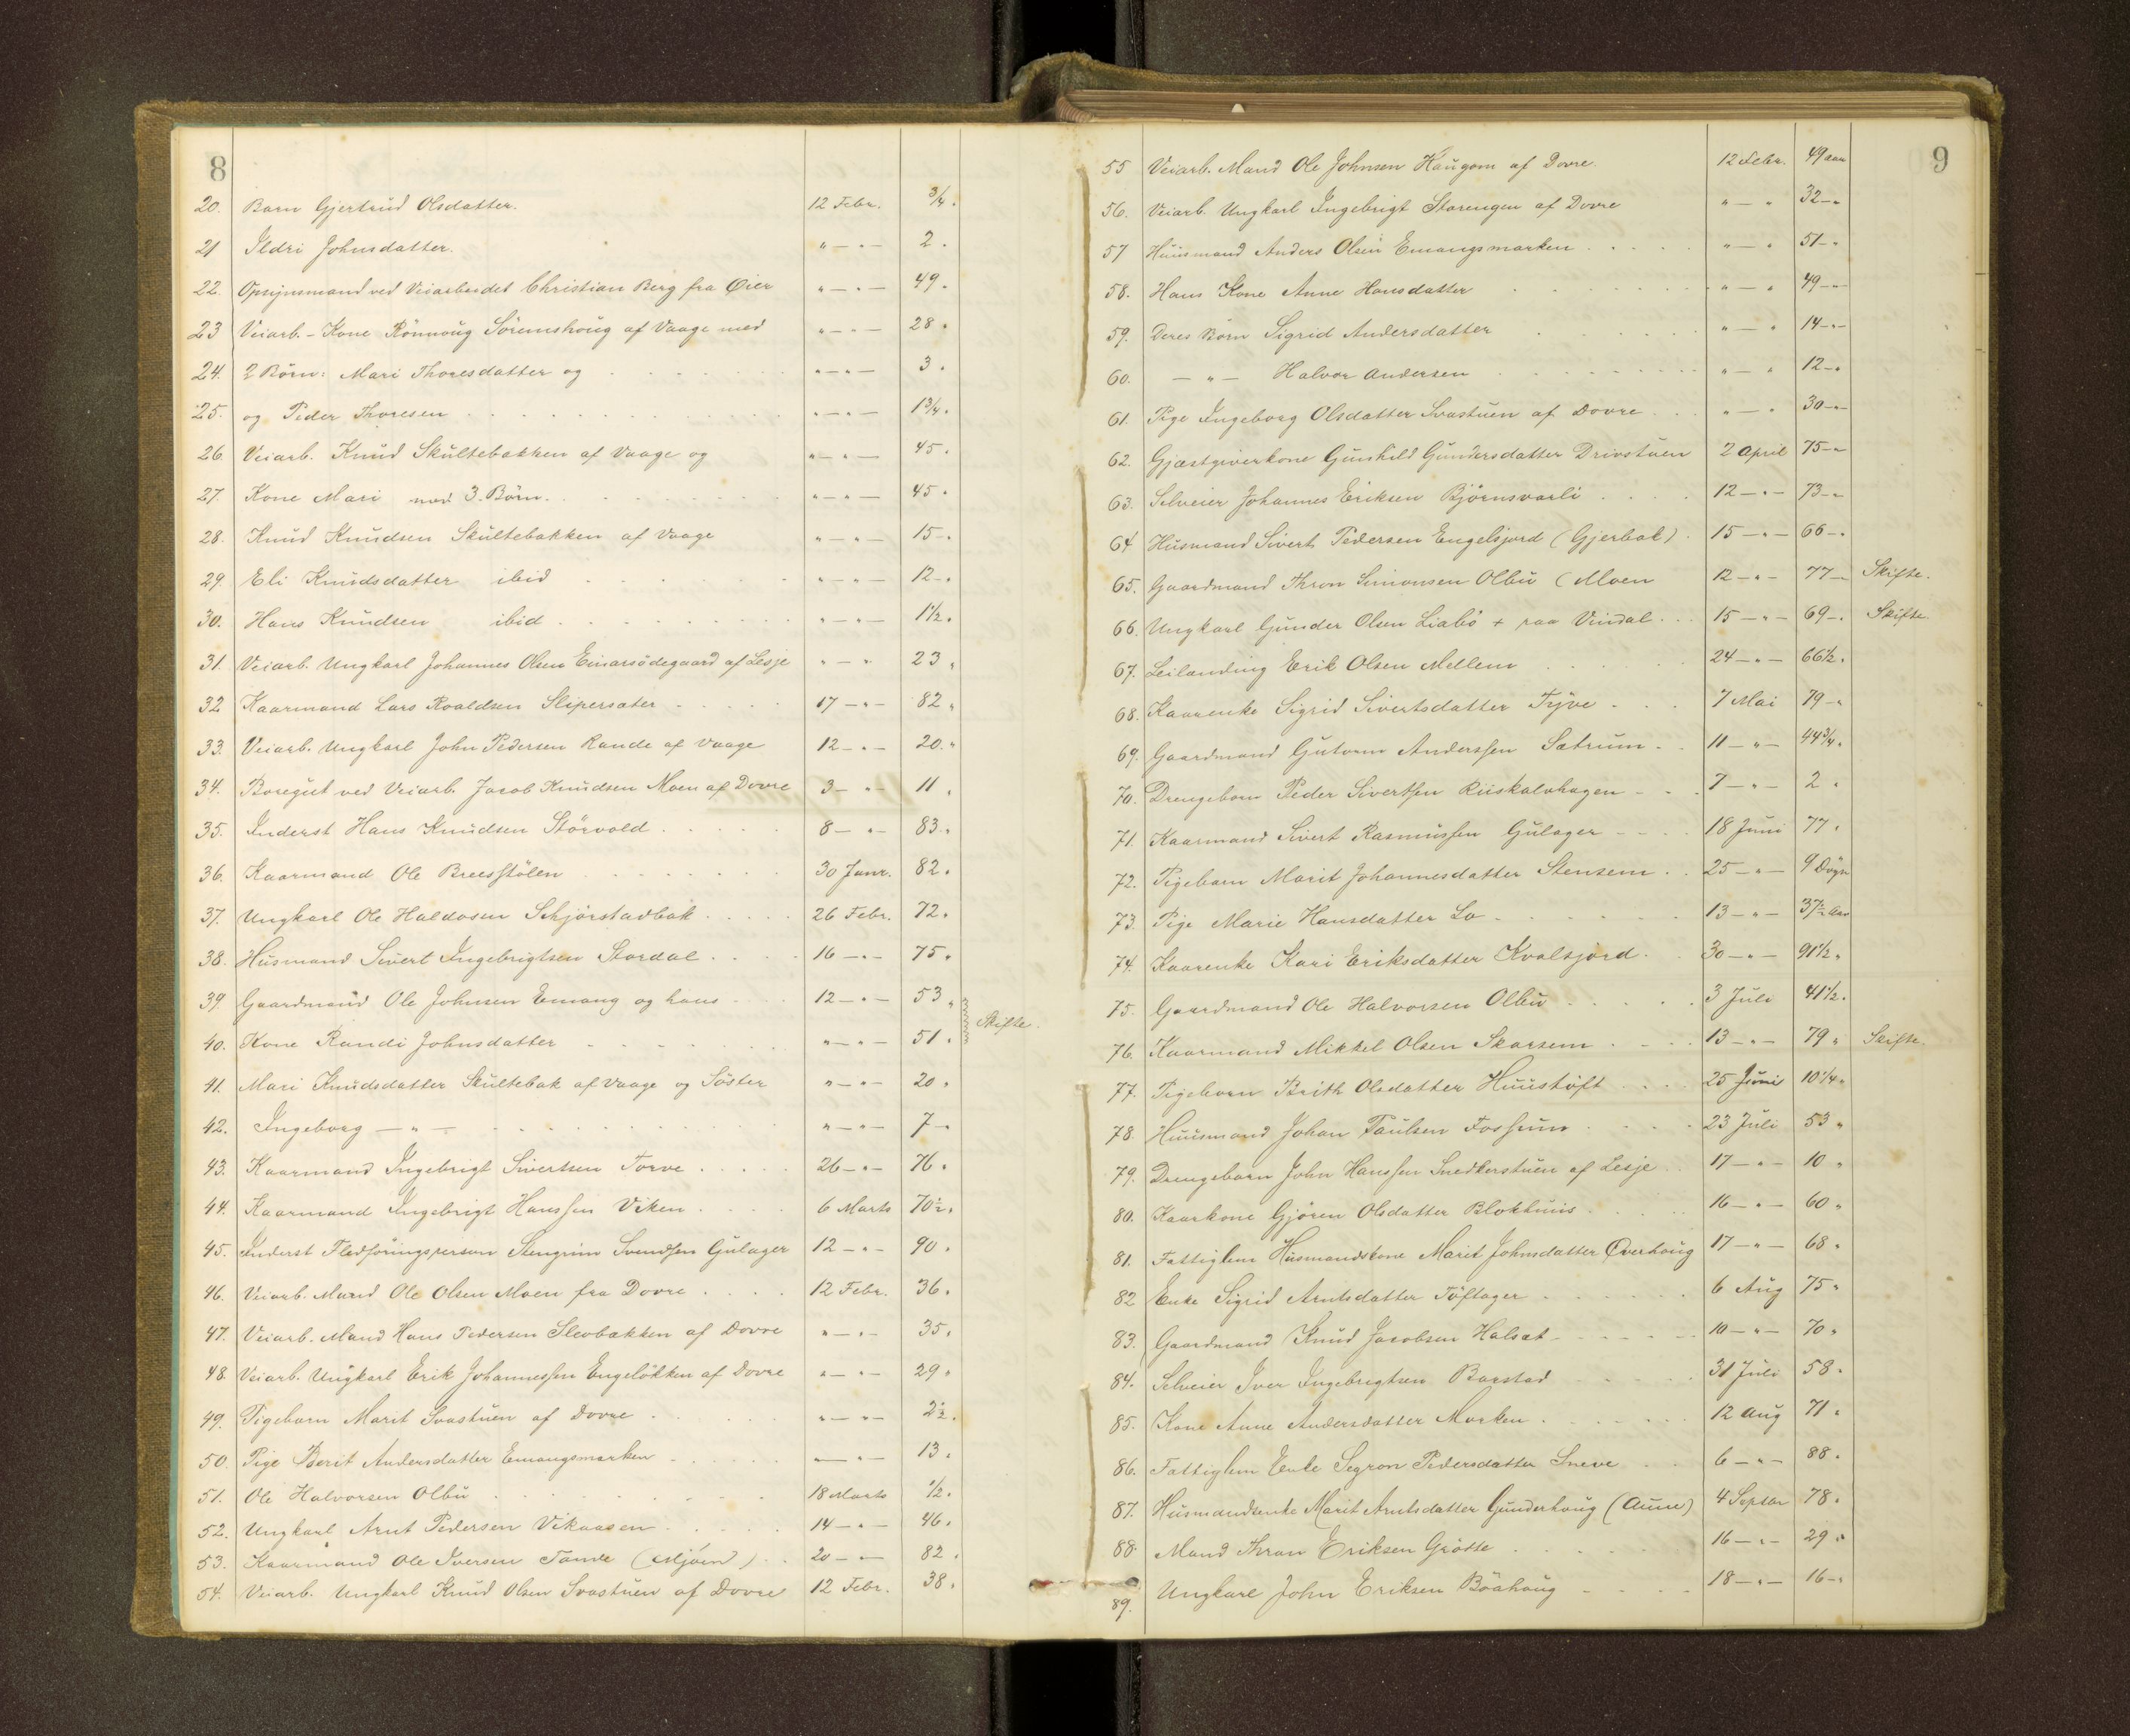 8
20. Barn Gjertrud Olsdatter. 12 Febr. 3/4 "
21 Ildri Johnsdatter. " — " — 2 "
22. Opsynsmand ved Veiarbeidet Christian Berg fra Øier " — " — 49 "
23 Veiarb.- Kone Rönnoug Söremshoug af Vaage med " — " — 28 "
24. 2 Börn: Mari Thoresdatter og " — " — 3 "
25. og Peder Thoresen " — " — 1 3/4 "
26. Veiarb. Knud Skultebakken af Vaage og " — " — 45 "
27. Kone Mari med 3. Börn. " — " — 45 "
28. Knud Knudsen Skultebakken af Vaage " — " — 15 – "
29. Eli Knudsdatter ibid " — " — 12 – "
30. Hans Knudsen ibid " — " — 1 1/2 "
31. Veiarb. Ungkarl Johannes Olsen Einarsödegaard af Lesje " — " 23 "
32 Kaarmand Lars Roaldsen Slipersæter 17 — " – 82 "
33. Veiarb. Ungkarl John Pedersen Rande af Vaage 12 – " – 20. "
34. Boregut ved Veiarb. Jacob Knudsen Moen af Dovre 3 – " – 11 "
35. Inderst Hans Knudsen Störvold 8 – " – 83 "
36. Kaarmand Ole Breesstölen 30 Janr. 82 "
37. Ungkarl Ole Haldosen Schjörstadbak 26 Febr. 72 "
38. Husmand Sivert Ingebrigtsen Stordal 16 — " – 75 "
39. Gaardmand Ole Johnsen Emang og hans 12 — " – 53 "
Skifte.
40. Kone Randi Johnsdatter " — " — 51 "
41. Mari Knudsdatter Skultebak af Vaage og Söster " — " – 20 "
42. Ingeborg — " — " — " — 7 – "
43. Kaarmand Ingebrigt Sivertsen Torve 26 – " – 76 "
44. Kaarmand Ingebrigt Hanssen Viken 6 Marts 70 1/2 "
45. Inderst Fledföringsperson Stengrim Svendsen Gulager 12 — " – 90 "
46. Veiarb. Mand Ole Olsen Moen fra Dovre 12 Febr. 36 "
47. Veiarb. Mand Hans Pedersen Slevbakken af Dovre " — " – 35 "
48. Veiarb. Ungkarl Erik Johannessen Engelökken af Dovre " — " – 29 "
49. Pigebarn Marit Svastuen af Dovre " — " – 2 1/2 "
50. Pige Berit Andersdatter Emangsmarken — " – 13 "
51. Ole Halvorsen Olbu 18 Marts 1/2 "
52. Ungkarl Arnt Pedersen Vikaasen 14 — " — 46 "
53. Kaarmand Ole Iversen Tande (Mjöen) 20 – " – 82 "
54. Veiarb. Ungkarl Knud Olsen Svastuen af Dovre 12 Febr. 38 "
9
55 Veiarb. Mand Ole Johnsen Haugom af Dovre. 12 Febr. 49 aar
56. Veiarb. Ungkarl Ingebrigt Storengen af Dovre " — " 32 – "
57 Huusmand Anders Olsen Emangsmarken " — " 51 – "
58. Hans Kone Anne Hansdatter " — " 49 – "
59. Deres Börn Sigrid Andersdatter " — " 14 – " –
60. — " — Halvor Andersen " — " 12 – "
61. Pige Ingeborg Olsdatter Svastuen af Dovre " — " 30 – " –
62. Gjæstgiverkone Gunhild Gundersdatter Drivstuen 2 April 75 – "
63. Selveier Johannes Eriksen Björnsvarli 12 – " – 73 – "
64 Husmand Sivert Pedersen Engelsjord (Gjerbak) 15 – " – 66 – "
65. Gaardmand Thron Simonsen Olbu (Moen 12 – " – 77 – Skifte.
66. Ungkarl Gunder Olsen Liabö + paa Vindal 15 – " – 69 – " Skifte.
67. Leilending Erik Olsen Mellem 24 – " – 66 1/2 "
68. Kaarenke Sigrid Sivertsdatter Tyve 7 Mai 79 – "
69. Gaardmand Gutorm Anderssen Sætrum 11 – " – 44 3/4 "
70. Drengebarn Peder Sivertsen Riiskalvhagen 7 – " – 2 "
71. Kaarmand Sivert Rasmussen Gulager 18 Juni 77 "
72. Pigebarn Marit Johannesdatter Stensem 25 – " – 9 Dögn
73. Pige Marie Hansdatter Lo 13 – " – 37 1/2 aar
74. Kaarenke Kari Eriksdatter Kvalsjord 30 – " – 91 1/2 "
75. Gaardmand Ole Halvorsen Olbu 3 Juli 41 1/2 "
76. Kaarmand Mikkel Olsen Skarsem 13 – " – 79 " Skifte.
77. Pigebarn Brith Olsdatter Huustöft 25 Juni 10 1/4 "
78. Huusmand Johan Paulsen Fossum 23 Juli 53 "
79. Drengebarn John Hanssen Snedkerstuen af Lesje 17 – " – 10 "
80. Kaarkone Gjören Olsdatter Blokhuus 16 – " – 60 "
81. Fattiglem Husmandskone Marit Johnsdatter Overhoug 17 – " – 68 "
82 Enke Sigrid Arntsdatter Töftager 6 Aug 75 "
83. Gaardmand Knud Jacobsen Halset 10 – " – 70 "
84. Selveier Iver Ingebrigtsen Barstad 31 Juli 58 "
85. Kone Anne Andersdatter Morken 12 Aug 71 "
86. Fattiglem Enke Segron Pedersdatter Sneve 6 – " – 88 "
87. Husmandsenke Marit Arntsdatter Gunderhoug (Aune) 4 Septbr 78 "
88. Mand Thron Eriksen Grötte 16 – " – 29 "
89. Ungkarl John Eriksen Böahoug 18 – " – 16 – "